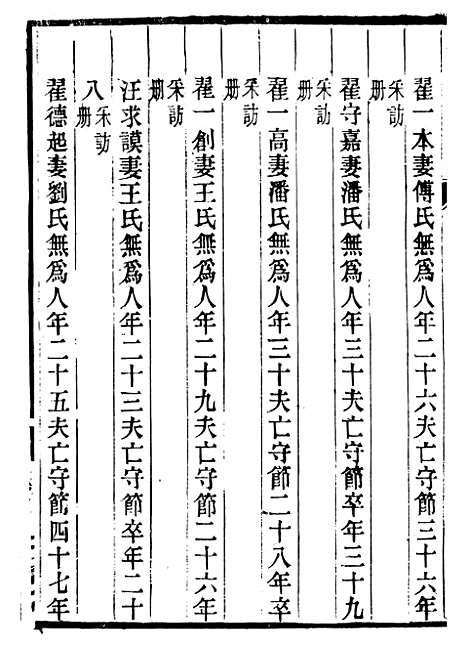 翟一本妻傅氏無爲人年二十六夫亡守節三十六年
采訪
册
翟守嘉妻潘氏無爲人年三十夫亡守節卒年三十九
采訪
册
翟一高妻潘氏無爲人年三十夫亡守節二十八年卒
采訪
册
翟一創妻王氏無爲人年二十九夫亡守節二十六年
采訪
册
汪求謨妻王氏無爲人年二十三夫亡守節卒年二十
八采訪
册
翟德起妻劉氏無爲人年二十五夫亡守節四十七年